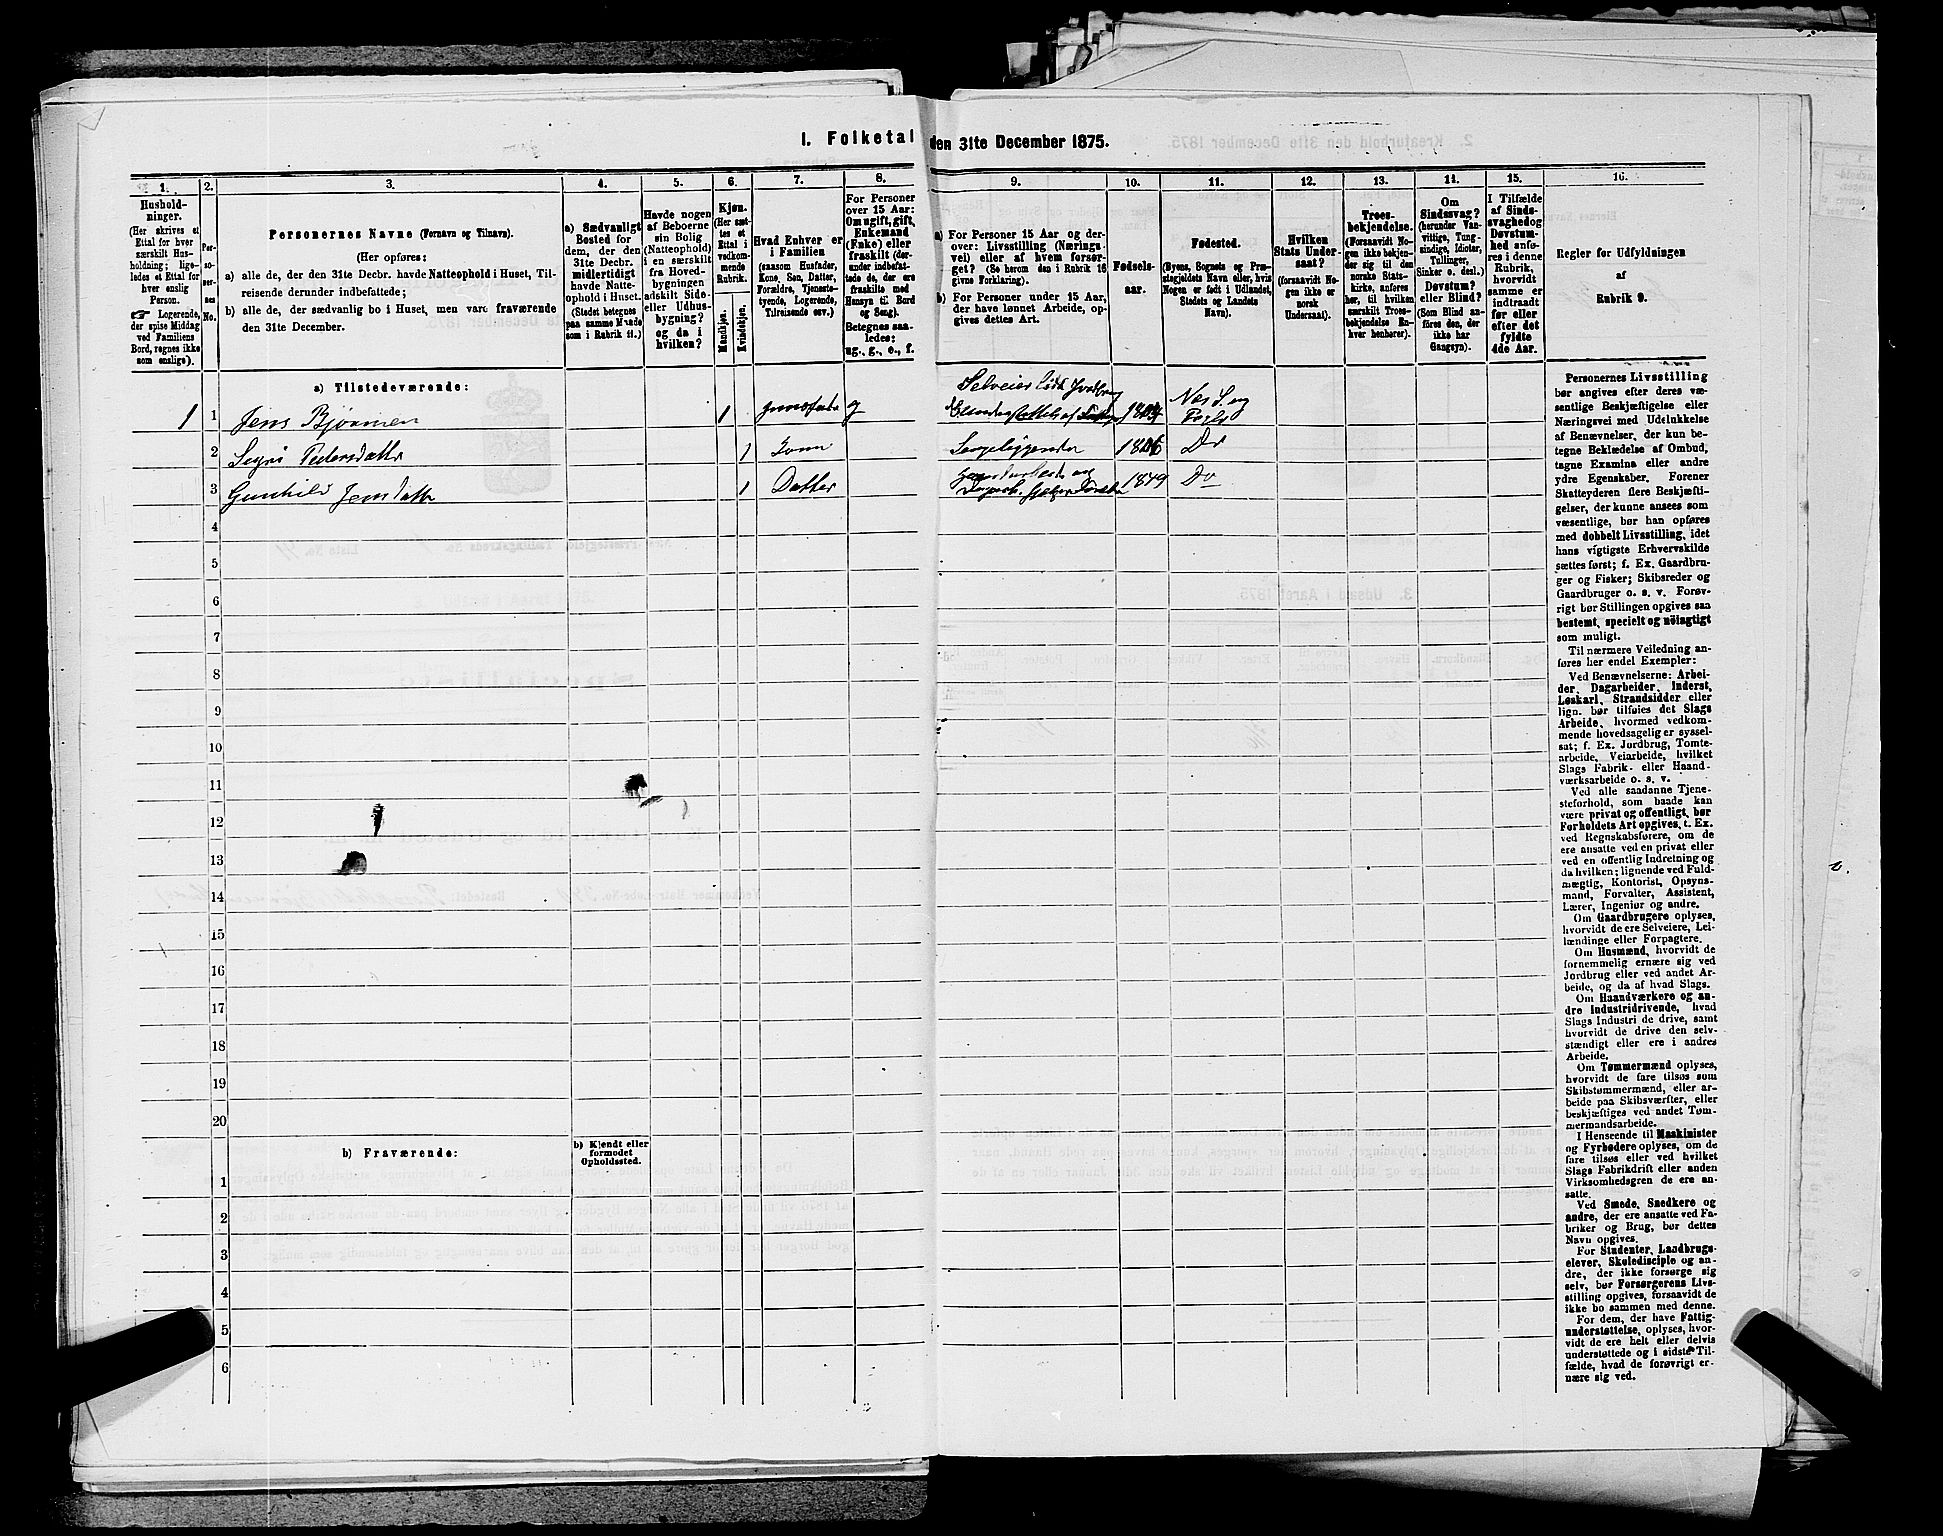 I. Folketal den 31te December 1875.
1. 2. 3. 4. 5. 6. 7. 8. 9. 10. 11. 12. 13. 14. 15. 16.
Hushold-
ninger.
(Her skrives et
Ettal for hver
særskilt Hus-
holdning; lige-
ledes et Ettal for
hver enslig
Person.
☞ Logerende,
der spise Middag
ved Familiens
Bord, regnes ikke
som enslige).
Per-
so-
ner-
nes
No.
Personernes Navne (Fornavn og Tilnavn).
(Her opføres:
a) alle de, der den 31te Decbr. havde Natteophold i Huset, Til-
reisende derunder indbefattede;
b) alle de, der sædvanlig bo i Huset, men vare fraværende
den 31te December.
a) Sædvanligt
Bosted for
dem, der den
31te Decbr.
midlertidigt
havde Natte-
ophold i Huset.
(Stedet betegnes
paa samme Maade
som i Rubrik 11.)
Havde nogen
af Beboerne
sin Bolig
(Natteophold)
i en særskilt
fra Hoved-
bygningen
adskilt Side-
eller Udhus-
bygning?
og da i
hvilken?
Kjøn.
(Her sæt-
tes et
Ettal i
vedkom-
mende
Rubrik.
Mandkjøn.
Kvindekjøn.
Hvad Enhver er
i Familien
(saasom Husfader,
Kone, Søn, Datter,
Forældre, Tjeneste-
tyende, Logerende,
Tilreisende osv.)
For Personer
over 15 Aar:
Om ugift, gift,
Enkemand
(Enke) eller
fraskilt (der-
under indbefat-
tede de, der ere
fraskilte med
Hensyn til Bord
og Seng).
Betegnes saa-
ledes:
ug., g., e., f.
a) For Personer 15 Aar og der-
over: Livsstilling (Nærings-
vei) eller af hvem forsør-
get? (Se herom den i Rubrik 16
givne Forklaring).
b) For Personer under 15 Aar,
der have lønnet Arbeide, op-
gives dettes Art.
Fødsels-
aar.
Fødested.
(Byens, Sognets og Præ-
stegjeldets Navn eller, hvis
Nogen er født i Udlandet,
Stedets og Landets
Navn).
Hvilken
Stats Under-
saat?
(forsaavidt No-
gen ikke er
norsk
Undersaat).
Troes-
bekjendelse.
(Forsaavidt No-
gen ikke bekjen-
der sig til den
norske Stats-
kirke, anføres
her, til hvilken
særskilt Troes-
bekjendelse En-
hver henhører).
Om
Sindssvag?
(herunder Van-
vittige, Tung-
sindige, Idioter,
Tullinger,
Sinker o. desl.)
Døvstum?
eller Blind?
(Som Blind an-
føres den, der
ikke har
Gangsyn).
I Tilfælde
af Sinds-
svaghed og
Døvstum-
hed anfø-
res i denne
Rubrik,
hvorvidt
samme er
indtraadt
før eller
efter det
fyldte
4de Aar.
Regler for Udfyldningen
af
Rubrik 9.
a) Tilstedeværende:
1 1 Jens Bjørnsen 1 g Selveier 1804 Nes
2 Segri Pedersdatter 1 Kone Sengeliggende 1806 Do
3 Gunhild Jensdatter 1 Datter 1849 Do
4
5
6
7
8
9
10
11
12
13
14
15
16
17
18
19
20
b) Fraværende:
b) Kjendt eller
formodet
Opholdssted.
1
2
3
4
5
6
Personernes Livsstilling
bør angives efter deres væ-
sentlige Beskjæftigelse eller
Næringsvei med Udelukkelse
af Benævnelser, der kun be-
tegne Beklædelse af Ombud,
tagne Examina eller andre
ydre Egenskaber. Forener
Skatteyderen flere Beskjæfti-
gelser, der kunne ansees som
væsentlige, bør han opføres
med dobbelt Livsstilling, idet
hans vigtigste Erhvervskilde
sættes først; f. Ex. Gaardbru-
ger og Fisker; Skibsreder og
Gaardbruger o. s. v. Forøv-
rigt bør Stillingen opgives saa
bestemt, specielt og nøiagtigt
som muligt.
Til nærmere Veiledning an-
føres her endel Exempler:
Ved Benævnelserne: Arbei-
der, Dagarbeider, Inderst,
Løskarl, Strandsidder eller
lign. bør tilføies det Slags
Arbeide, hvormed vedkom-
mende hovedsagelig er syssel-
sat; f. Ex. Jordbrug, Tomte-
arbeide, Veiarbeide, hvilket
Slags Fabrik- eller Haand-
værksarbeide o. s. v.
Ved alle saadanne Tjene-
steforhold, som baade kan
være privat og offentligt, bør
Forholdets Art opgives, t. Ex.
ved Regnskabsførere, om de
ere ansatte ved en privat eller
ved en offentlig Indretning og
da hvilken; lignende ved Fuld-
mægtig, Kontorist, Opsyns-
mand, Forvalter, Assistent,
Lærer, Ingeniør og andre.
Om Gaardbrugere oplyses,
hvorvidt de ere Selveiere, Lei-
lændinge eller Forpagtere.
Om Husmænd, hvorvidt de
fornemmelig ernære sig ved
Jordbrug eller ved andet Ar-
beide, og da af hvad Slags.
Om Haandværkere og an-
dre Industridrivende, hvad
Slags Industri de drive, samt
hvorvidt de drive den selv-
stændigt eller ere i andres
Arbeide.
Om Tømmermænd oplyses,
hvorvidt de fare tilsøs som
Skibstømmermænd, eller ar-
beide paa Skibsværfter, eller
beskjæftiges ved andet Tøm-
mermandsarbeide.
I Henseende til Maskinister
og Fyrbødere oplyses, om de
fare tilsøs eller ved hvilket
Slags Fabrikdrift eller anden
Virksomhedsgren de ere an-
satte.
Ved Smede, Snedkere og
andre, der ere ansatte ved Fa-
briker og Brug, bør dettes
Navn opgives.
For Studenter, Landbrugs-
elever, Skoledisciple og an-
dre, der ikke forsørge sig
selv, bør Forsørgerens Livs-
stilling opgives, forsaavidt de
ikke bo sammen med denne.
For dem, der have Fattig-
understøttelse, oplyses, hvor-
vidt de ere helt eller delvis
understøttede og i sidste Til-
fælde, hvad de forøvrigt er-
nære sig ved.